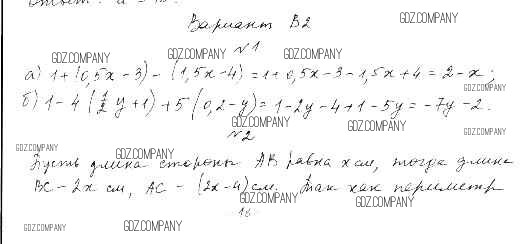 Вариант В2
GDZ.COMPANY
№1
GDZ.COMPANY GDZ.COMPANY GDZ.COMPANY
а) 1+(0,5x-3)-(1,5x-4)=1+0,5x-3-1,5x+4=2-x;
GDZ.COMPANY
б) 1-4(1/2y+1)+5(0,2-y)=1-2y-4+1-5y=-7y-2.
GDZ.COMPANY GDZ.COMPANY GDZ.COMPANY
№2
GDZ.COMPANY GDZ.COMPANY
Пусть длина стороны AB равна x см, тогда длина
BC - 2x см, AC - (2x-4) см. Так как периметр
GDZ.COMPANY GDZ.COMPANY
16
GDZ.COMPANY GDZ.COMPANY